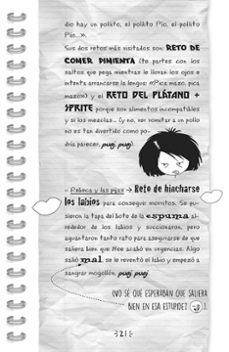 dio hay un pollito, el pollito Pío, el pollito
Pío...».
Sus dos retos más visitados son: RETO DE
COMER PIMIENTA (te partes con los
saltos que pega mientras le lloran los ojos e
intenta arrancarse la lengua: «Pica mazo, pica
mazo») y el RETO DEL PLÁTANO +
SPRITE porque son alimentos incompatibles
y si los mezclas... (y no, ver vomitar a un pollo
no es tan divertido como po-
dría parecer, puaj, puaj).
– Rebeca y las pijas → Reto de hincharse
los labios para conseguir morritos. Se pu-
sieron la tapa del bote de la espuma al-
rededor de los labios y succionaron, pero
aguantaron tanto rato para asegurarse de que
saliera bien que Noe acabó en urgencias. Algo
salió mal, se le reventó el labio y empezó a
sangrar mogollón, puaj, puaj
(NO SÉ QUÉ ESPERABAN QUE SALIERA
BIEN EN ESA ESTUPIDEZ).
21